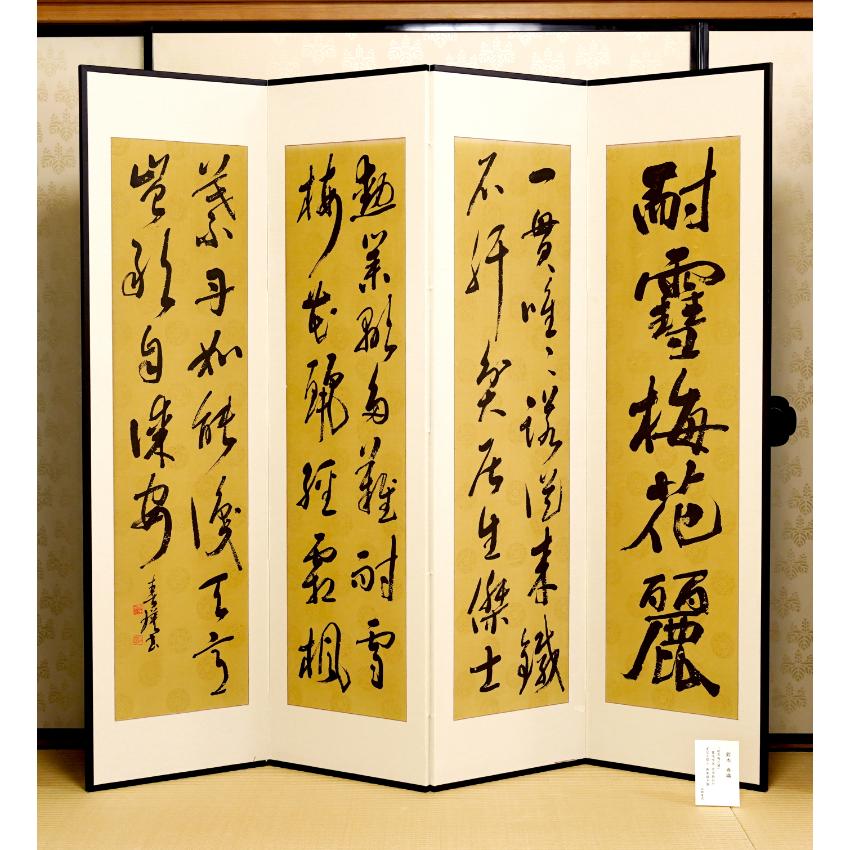 耐雪梅花麗
一貫唯々諾從来鐵
石肝貧居生傑士
勲業顕多難耐雪
梅花麗經霜楓
葉丹如能識天意
豈敢自謀安